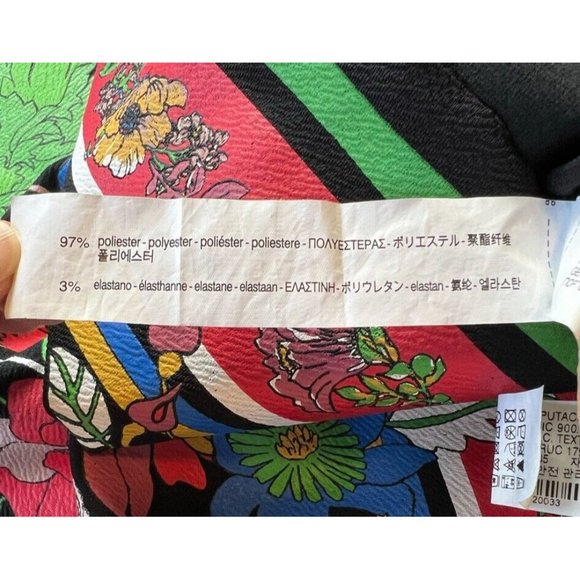 97% poliester - polyester - poliéster - poliestere - ΠΟΛΥΕΣΤΕΡΑΣ - ポリエステル - 聚酯纤维
폴리에스터
3% elastano - élasthanne - elastane - elastaan - ΕΛΑΣΤΙΝΗ - ポリウレタン - elastan - 氨纶 - 엘라스탄
PUTAC
IC 900.
C. TEX
RUC 179
20033